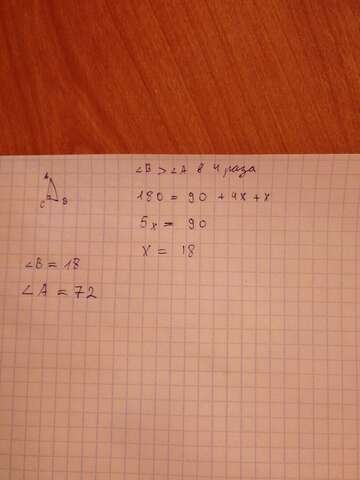 A
C B
∠B > ∠A в 4 раза
180 = 90 + 4x + x
5x = 90
x = 18
∠B = 18
∠A = 72